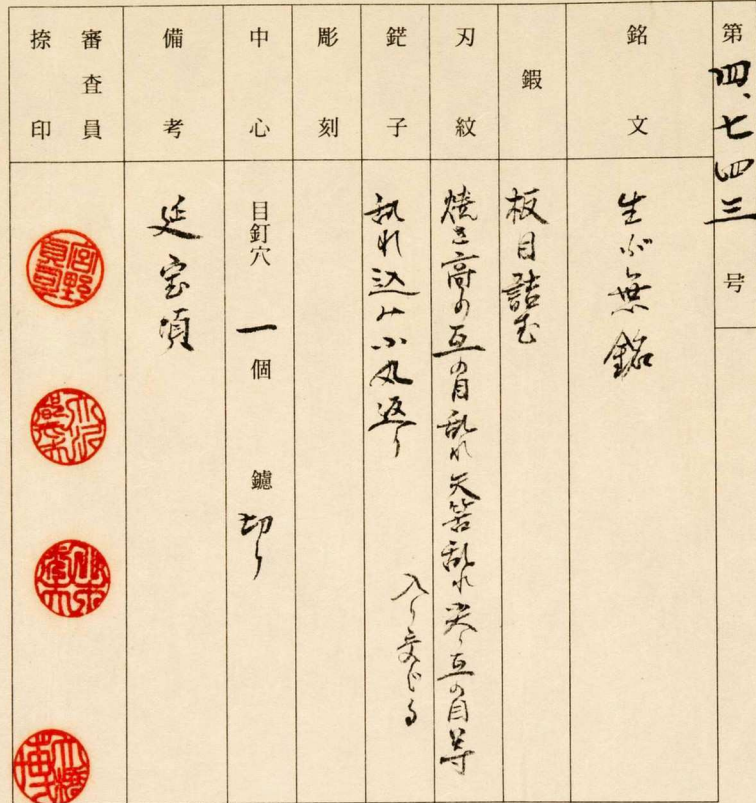 第四、七四三号
銘文
生ぶ無銘
鍜
板目詰む
刃紋
焼き高の互の目乱れ矢筈乱れ尖り互の目等
入り交じる
鋩子
乱れ込み小丸返り
彫刻
中心
目釘穴 一個 鑢 切り
備考
延宝頃
審査員
捺印